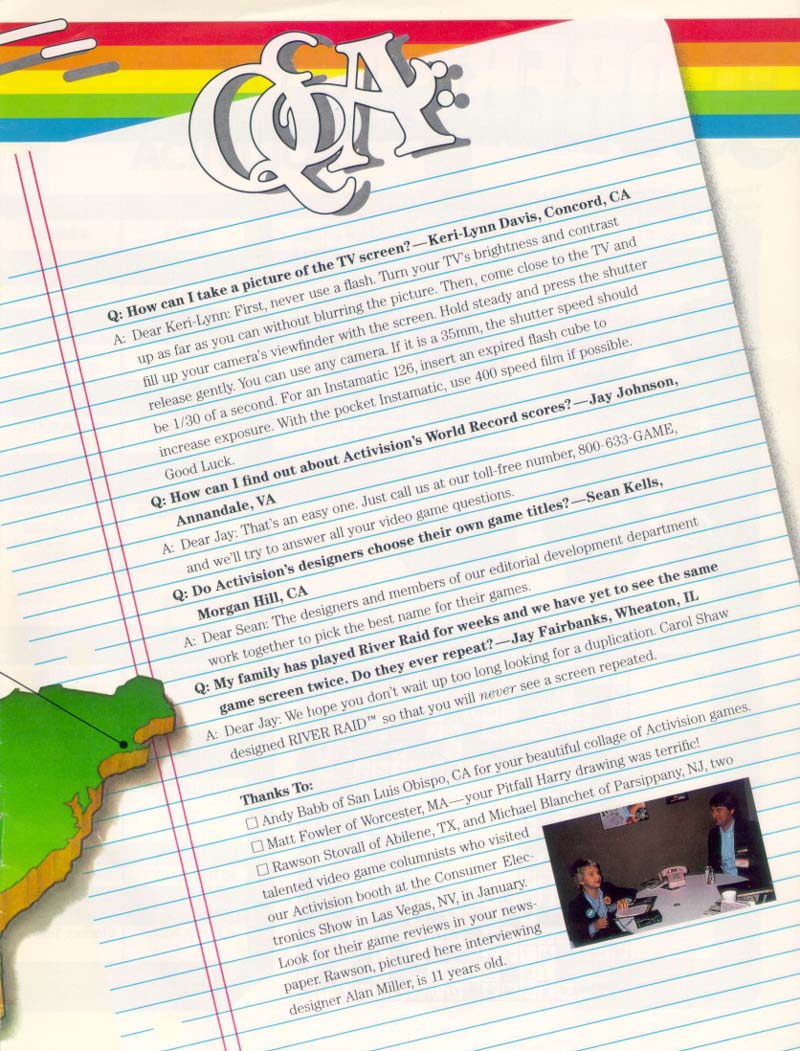 Q&A
Q: How can I take a picture of the TV screen?—Keri-Lynn Davis, Concord, CA
A: Dear Keri-Lynn: First, never use a flash. Turn your TV's brightness and contrast
up as far as you can without blurring the picture. Then, come close to the TV and
fill up your camera's viewfinder with the screen. Hold steady and press the shutter
release gently. You can use any camera. If it is a 35mm, the shutter speed should
be 1/30 of a second. For an Instamatic 126, insert an expired flash cube to
increase exposure. With the pocket Instamatic, use 400 speed film if possible.
Good Luck.
Q: How can I find out about Activision's World Record scores?—Jay Johnson,
Annandale, VA
A: Dear Jay: That's an easy one. Just call us at our toll-free number, 800-633-GAME,
and we'll try to answer all your video game questions.
Q: Do Activision's designers choose their own game titles?—Sean Kells,
Morgan Hill, CA
A: Dear Sean: The designers and members of our editorial development department
work together to pick the best name for their games.
Q: My family has played River Raid for weeks and we have yet to see the same
game screen twice. Do they ever repeat?—Jay Fairbanks, Wheaton, IL
A: Dear Jay: We hope you don't wait up too long looking for a duplication. Carol Shaw
designed RIVER RAID™ so that you will never see a screen repeated.
Thanks To:
☐ Andy Babb of San Luis Obispo, CA for your beautiful collage of Activision games.
☐ Matt Fowler of Worcester, MA—your Pitfall Harry drawing was terrific!
☐ Rawson Stovall of Abilene, TX, and Michael Blanchet of Parsippany, NJ, two
talented video game columnists who visited
our Activision booth at the Consumer Elec-
tronics Show in Las Vegas, NV, in January.
Look for their game reviews in your news-
paper. Rawson, pictured here interviewing
designer Alan Miller, is 11 years old.